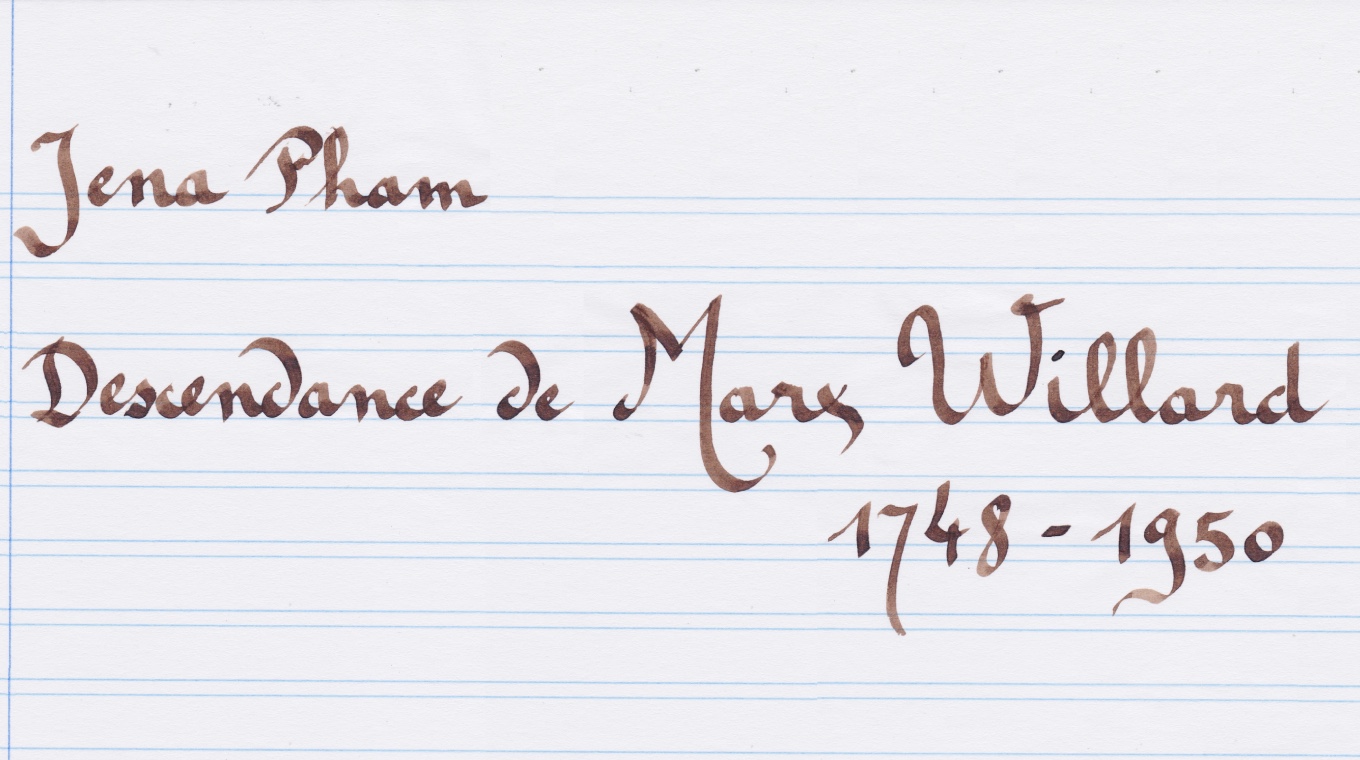 Jena Pham
Descendance de Mary Willard
1748 - 1950